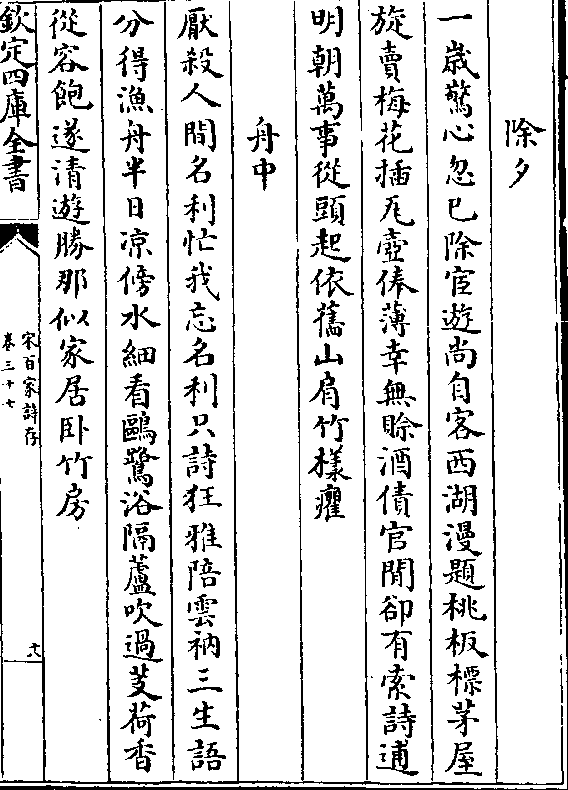 除夕
一歳驚心忽已除宦遊尚自客西湖漫題桃板標茅屋
旋賣梅花插瓦壺俸薄幸無賒酒債官閒卻有索詩逋
明朝萬事從頭起依舊山肩竹様癯
舟中
厭殺人間名利忙我忘名利只詩狂雅陪雲衲三生語
分得漁舟半日凉傍水細看鷗鷺浴隔蘆吹過芰荷香
從容飽遂清遊勝那似家居卧竹房
欽定四庫全書
宋百家詩存
卷三十七